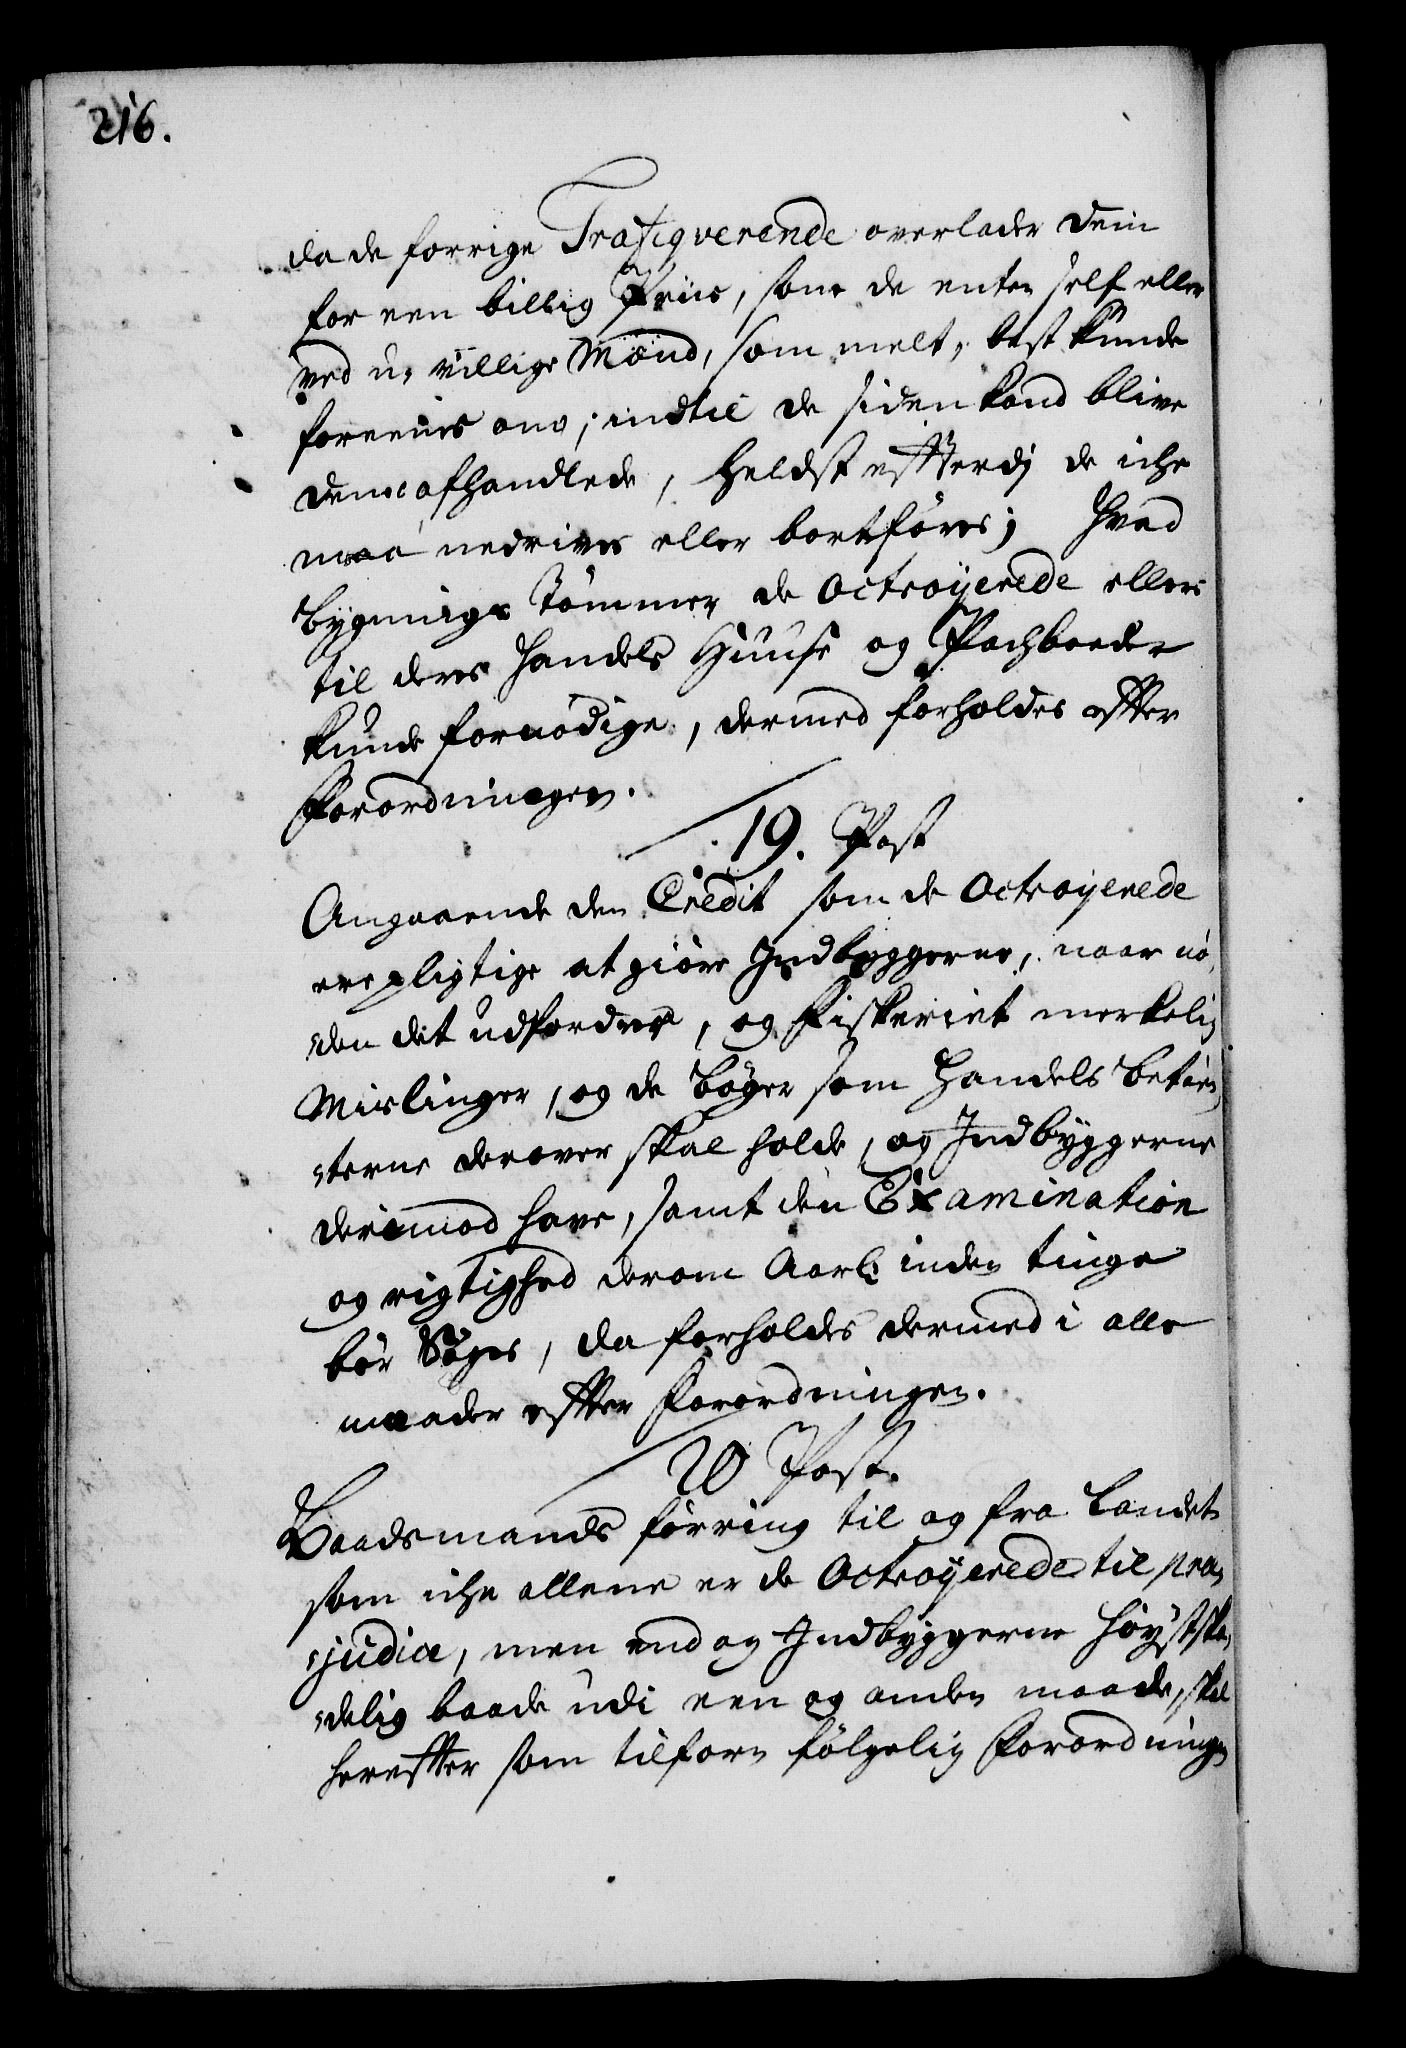 216.
da de forrige Trafiqverende overlader dem
for een billig Priis, som de enten self eller
ved u-villige Mænd, som melt, best kunde
foreenes om, indtil de siden kand blive
dem afhandlede, helst efftterdj de iche
maa nedrives eller bortføres; hvad
Bygnings Tømmer de Octroyerede ellers
til deres Handels Huuse og Pachboeder
kunde fornødige, dermed forholdes effter
Forordningen.
19. Post
Angaaende den Credit som de Octroyerede
ere pligtige at giøre Indbyggerne, naar nø,
„den det udfordres, og Fiskeriet merkelig
Mislinger, og de Bøger som Handels Betien,
„terne derover skal holde, og Indbyggerne
derimod have, samt den Examination
og rigtighed derom Aarl: inden tinge
bør Søges, da forholdes dermed i alle
maader effter Forordningen.
20 Post.
Baadsmands førring til og fra Landet
som iche allene er de Octroyerede til præ,
„judice, men end og Indbyggerne høystska,
„delig baade udi een og anden maade, skal
hereffter som tilforn følgelig Forordningen